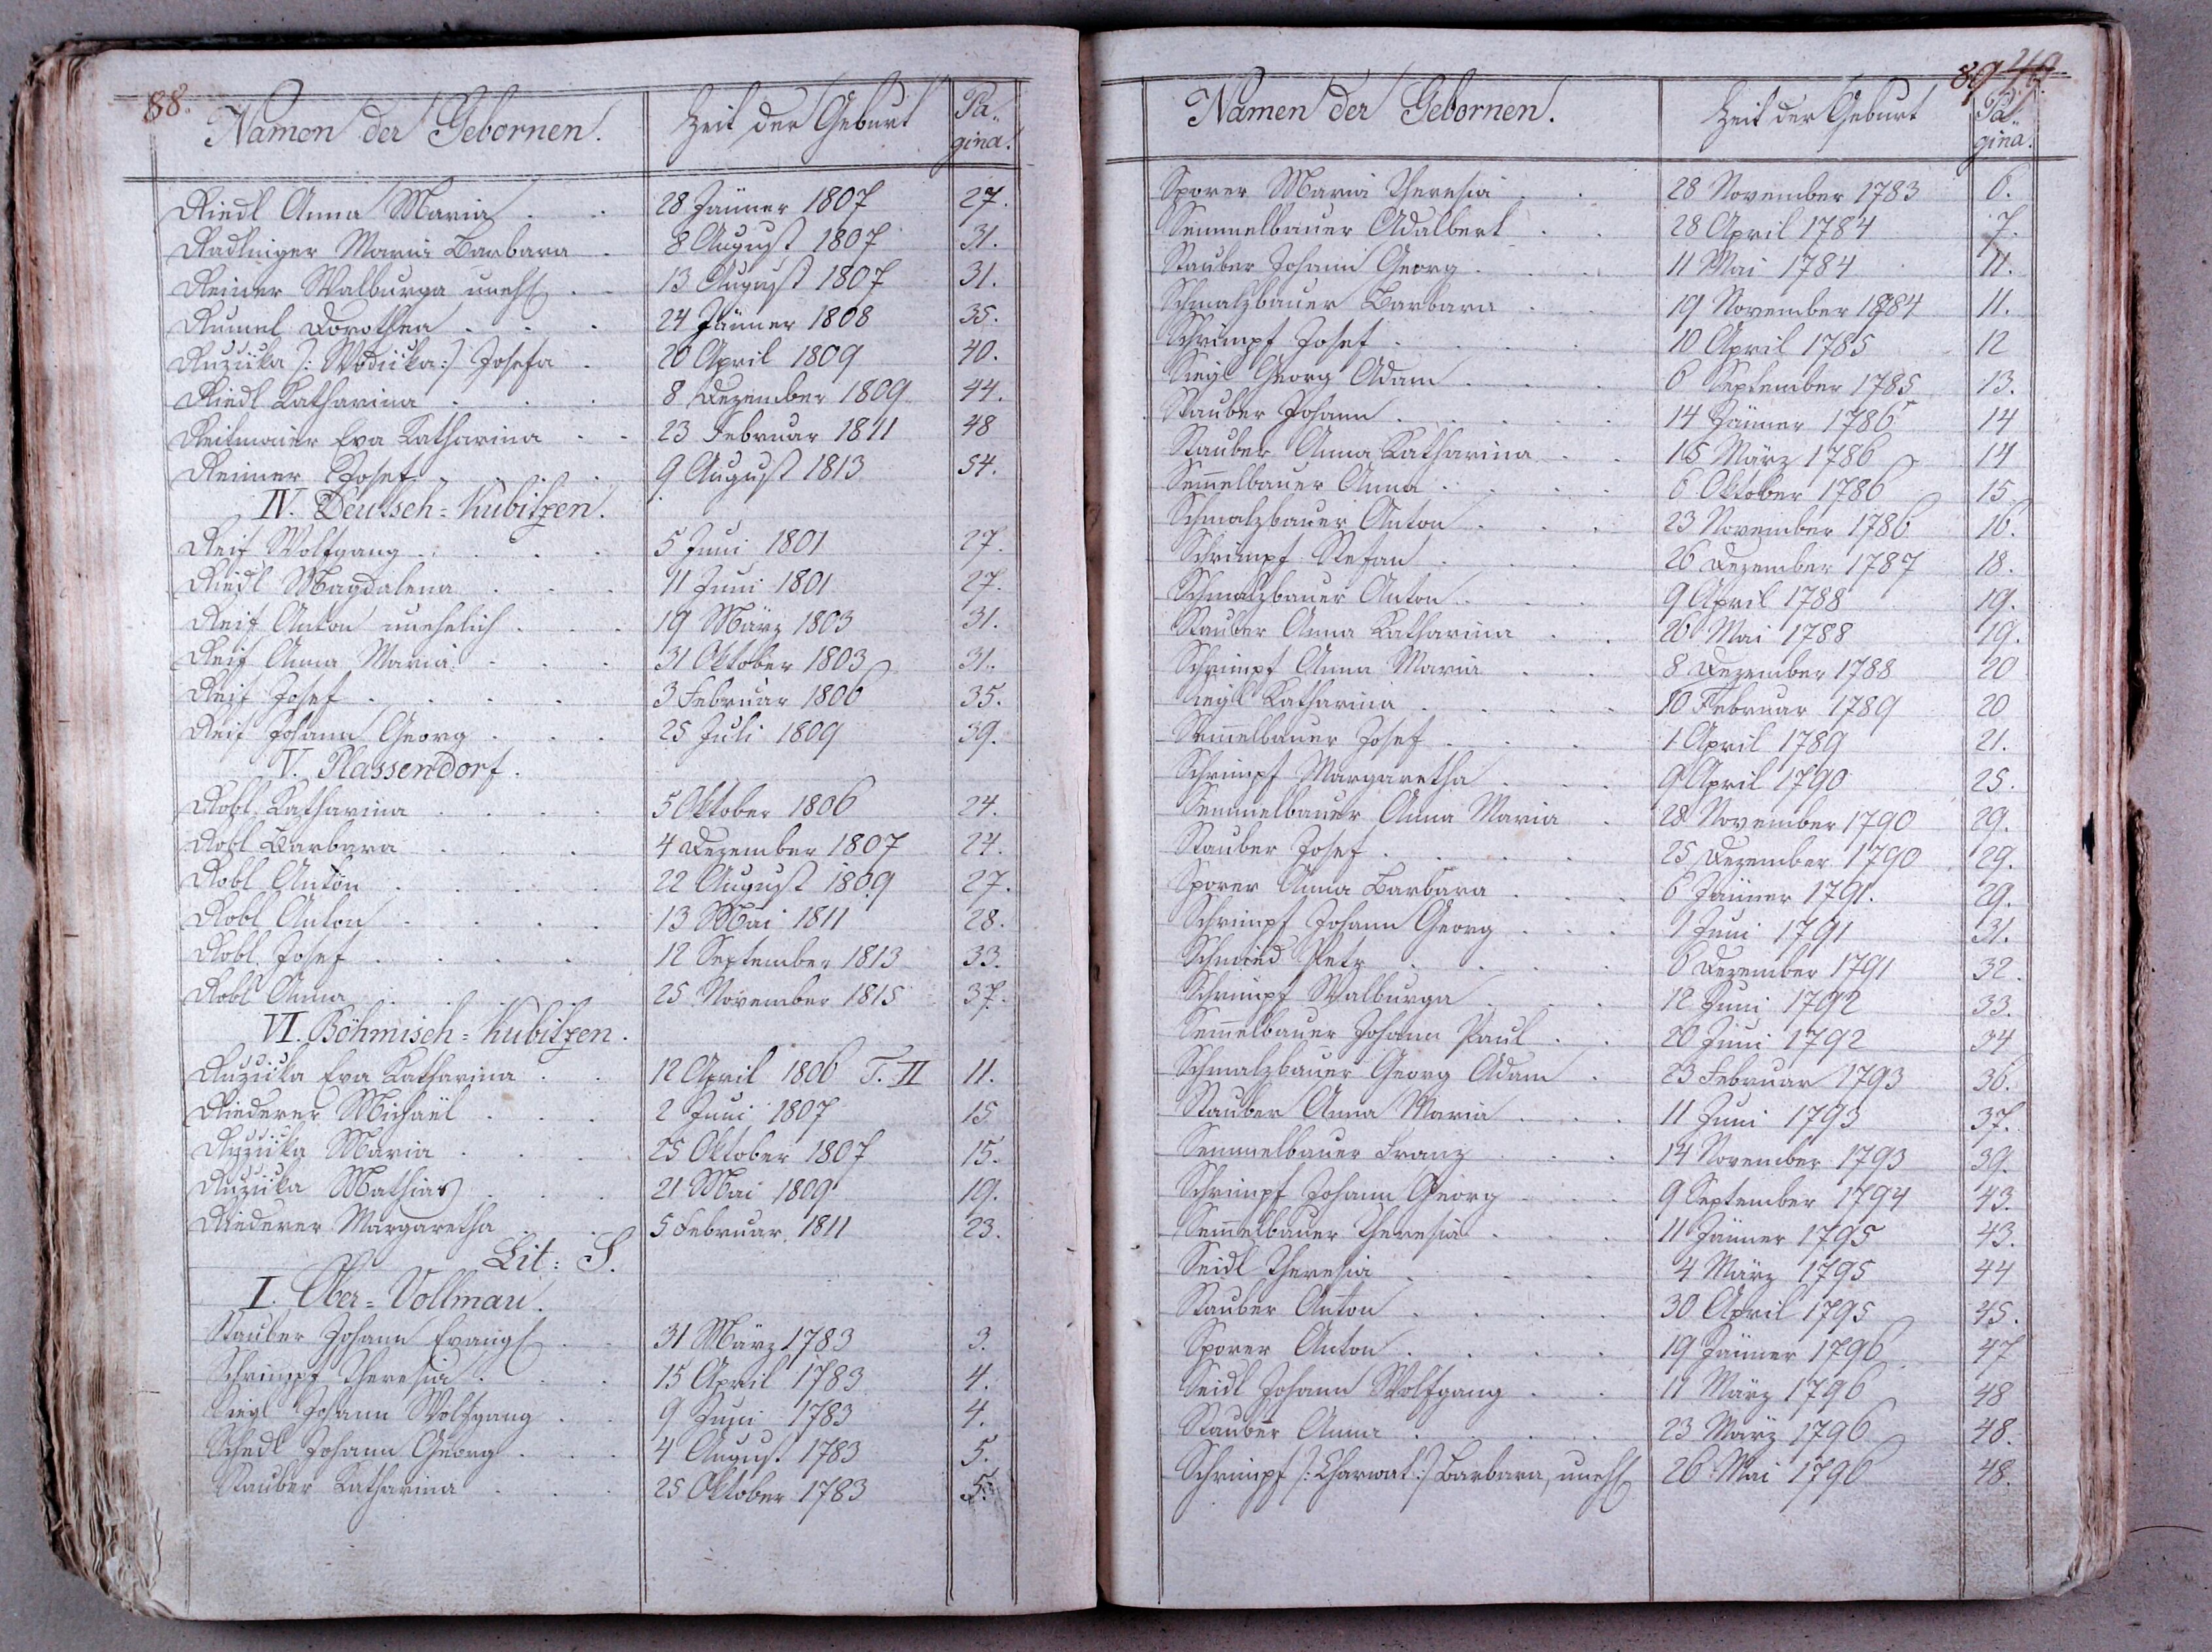 88.
Namen der Gebornen. Zeit der Geburt Pa-
gina.
Riedl Anna Maria 28 Jänner 1807 27.
Radlinger Maria Barbara 8 August 1807 31.
Reimer Walburga unehl 13 August 1807 31.
Rumel Dorothea 24 Jänner 1808 35.
Ružička /: Wodička :/ Josefa 20 April 1809 40.
Riedl Katharina 8 Dezember 1809 44.
Reitmaier Eva Katharina 23 Februar 1811 48
Reimer Josef 9 August 1813 54.
IV. Deutsch-Kubitzen.
Reif Wolfgang 5 Juni 1801 27.
Riedl Magdalena 11 Juni 1801 27.
Reif Anton unehelich 19 März 1803 31.
Reif Anna Maria 31 Oktober 1803 31.
Reif Josef 3 Februar 1806 35.
Reif Johann Georg 25 Juli 1809 39.
V. Plassendorf.
Robl Katharina 5 Oktober 1806 24.
Robl Barbara 4 Dezember 1807 24.
Robl Anton 22 August 1809 27.
Robl Anton 13 Mai 1811 28.
Robl Josef 12 September 1813 33.
Robl Anna 25 November 1815 37.
VI. Böhmisch-Kubitzen.
Ružička Eva Katharina 12 April 1806 T. II 11.
Riederer Michaël 2 Juni 1807 15
Ružička Maria 25 Oktober 1807 15.
Ružička Mathias 21 Mai 1809 19.
Riederer Margaretha 5 Februar 1811 23.
Lit: S.
I. Ober-Vollmau.
Stauber Johann Evangl 31 März 1783 3.
Schrimpf Theresia 15 April 1783 4.
Siegl Johann Wolfgang 9 Juni 1783 4.
Schedl Johann Georg 4 August 1783 5.
Stauber Katharina 25 Oktober 1783 5.
89
Namen der Gebornen. Zeit der Geburt Pa-
gina.
Sporer Maria Theresia 28 November 1783 6.
Semmelbauer Adalbert 28 April 1784 7.
Stauber Johann Georg 11 Mai 1784 11.
Schmalzbauer Barbara 19 November 1784 11.
Schrimpf Josef 10 April 1785 12
Siegl Georg Adam 6 September 1785 13.
Stauber Johann 14 Jänner 1786 14
Stauber Anna Katharina 15 März 1786 14
Sem̅elbauer Anna 6 Oktober 1786 15
Schmalzbauer Anton 23 November 1786 16.
Schrimpf Stefan 26 Dezember 1787 18.
Schmalzbauer Anton 9 April 1788 19.
Stauber Anna Katharina 20 Mai 1788 19.
Schrimpf Anna Maria 8 Dezember 1788 20
Siegl Katharina 10 Februar 1789 20
Sem̅elbauer Josef 1 April 1789 21.
Schrimpf Margaretha 9 April 1790 25.
Semmelbauer Anna Maria 28 November 1790 29.
Stauber Josef 25 Dezember 1790 29.
Sporer Anna Barbara 6 Jänner 1791. 29.
Schrimpf Johann Georg 1 Juni 1791 31.
Schmied Petr 6 Dezember 1791 32.
Schrimpf Walburga 12 Juni 1792 33.
Sem̅elbauer Johann Paul 20 Juni 1792 34
Schmalzbauer Georg Adam 23 Februar 1793 36.
Stauber Anna Maria 11 Juni 1793 37.
Semmelbauer Franz 14 November 1793 39.
Schrimpf Johann Georg 9 September 1794 43.
Sem̅elbauer Theresia 11 Jänner 1795 43.
Seidl Theresia 4 März 1795 44
Stauber Anton 30 April 1795 45.
Sporer Anton 19 Jänner 1796 47
Seidl Johann Wolfgang 11 März 1796 48
Stauber Anna 23 März 1796 48.
Schrimpf /: Charwat :/ Barbara, unehl 26 Mai 1796 48.